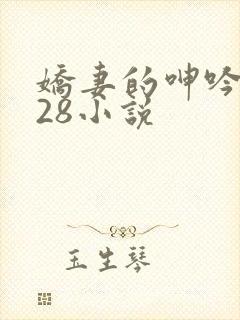 嬌妻的呻吟
28小説
玉生琴